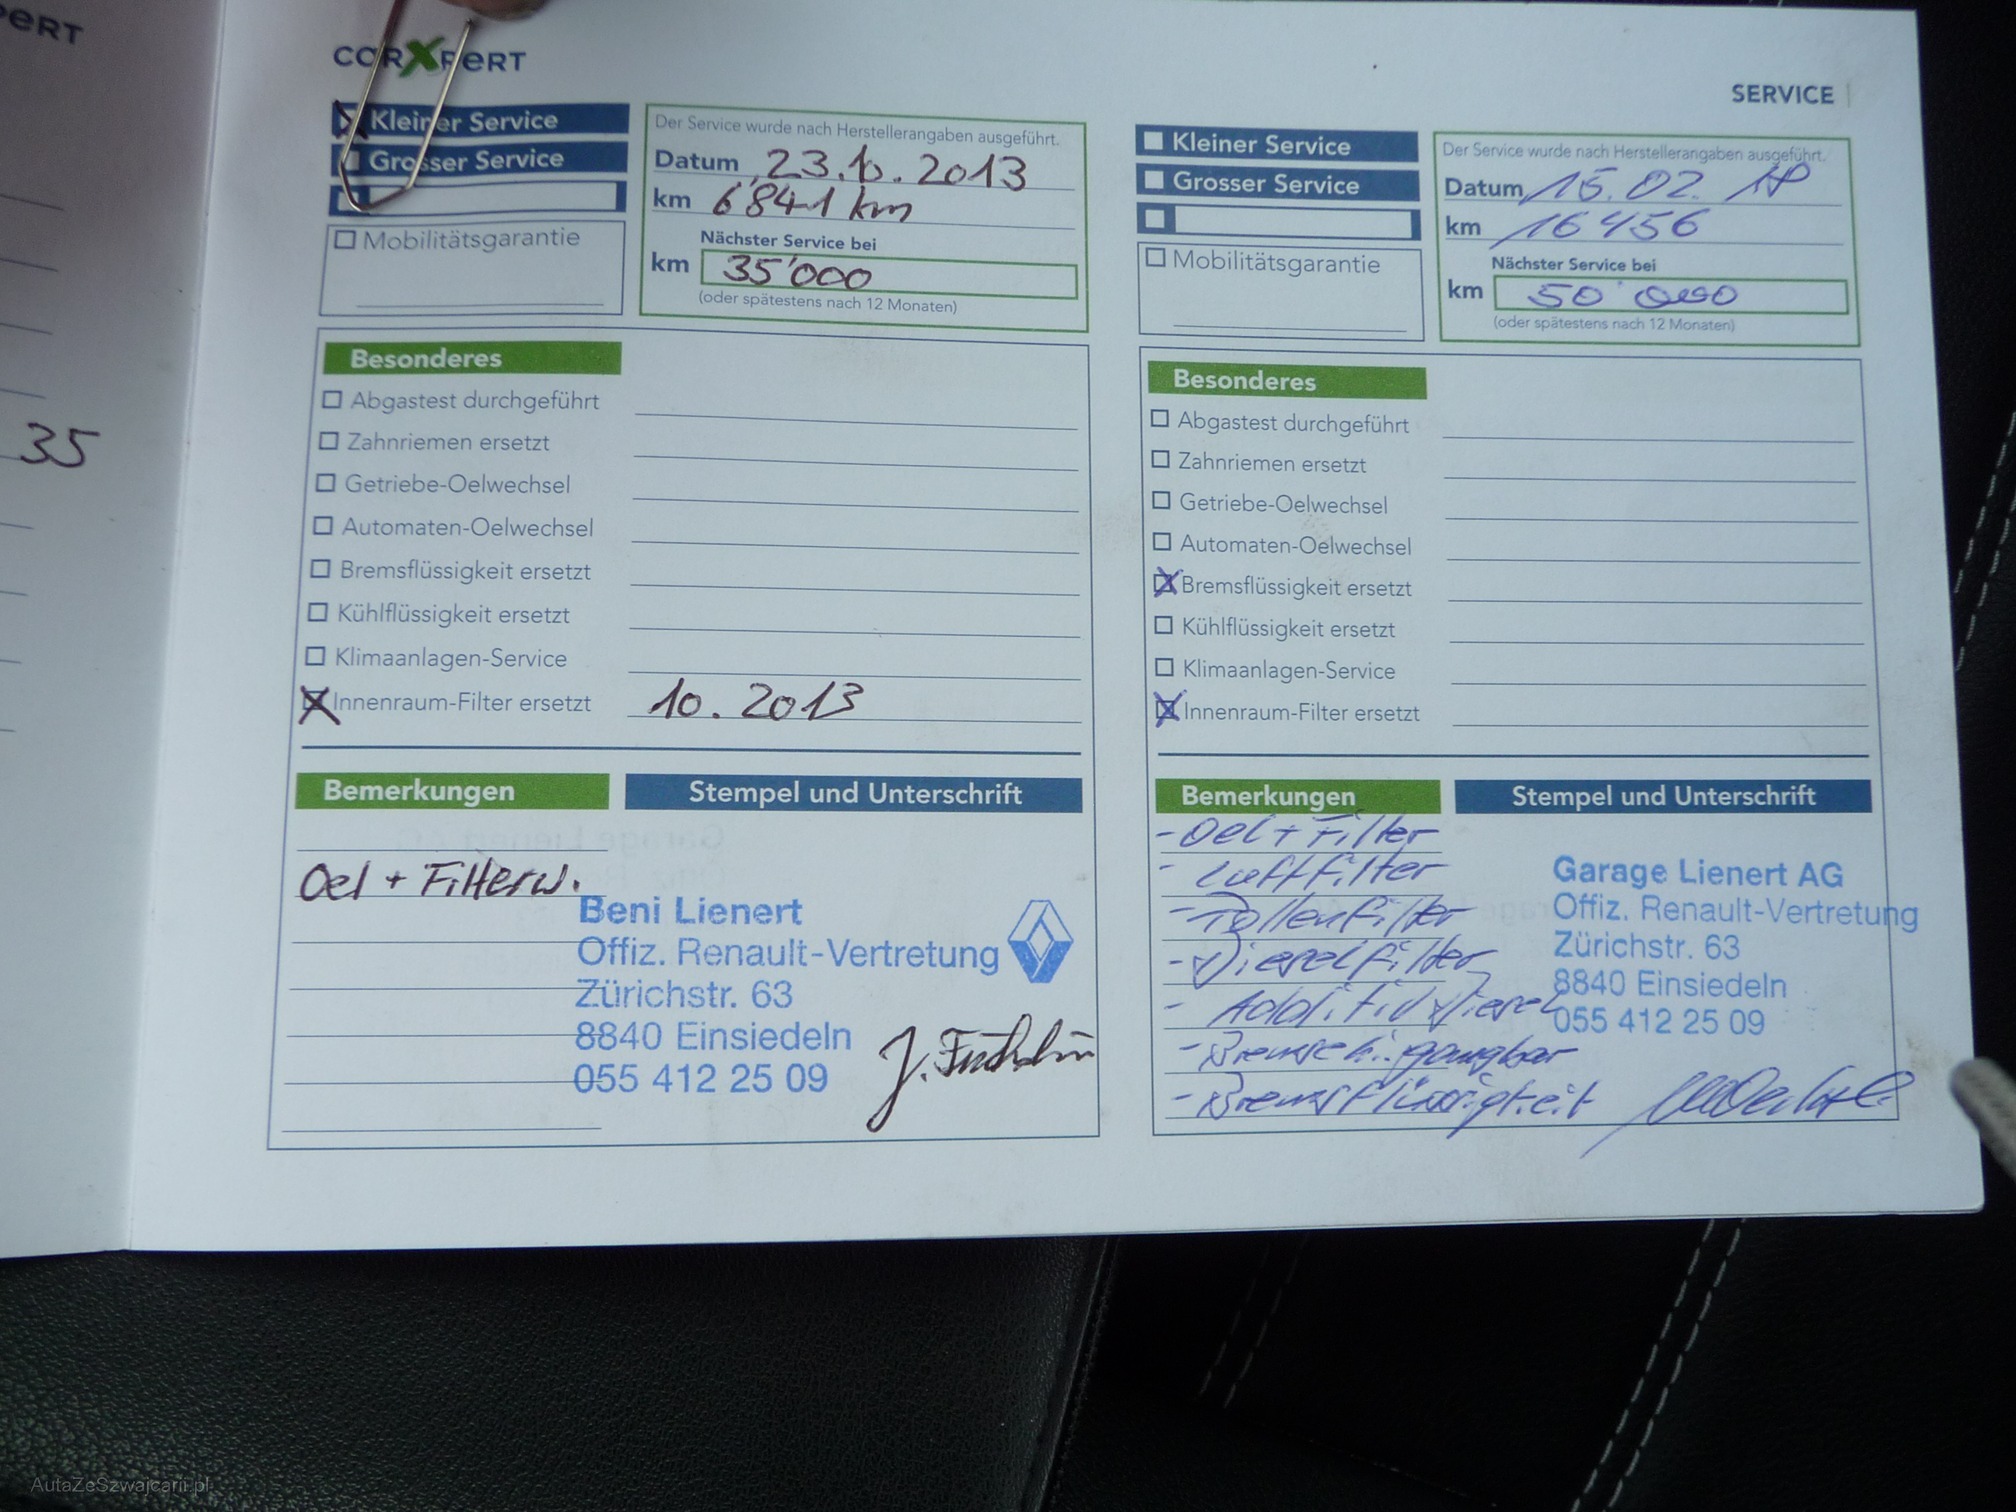 PERT
35
CARXPERT
SERVICE
Kleiner Service
Grosser Service
Mobilitätsgarantie
Der Service wurde nach Herstellerangaben ausgeführt.
Datum 23.10.2013
km 6'841 km
Nächster Service bei
km 35'000
(oder spätestens nach 12 Monaten)
Besonderes
Abgastest durchgeführt
Zahnriemen ersetzt
Getriebe-Oelwechsel
Automaten-Oelwechsel
Bremsflüssigkeit ersetzt
Kühlflüssigkeit ersetzt
Klimaanlagen-Service
Innenraum-Filter ersetzt 10.2013
Bemerkungen
Stempel und Unterschrift
Oel + Filterw.
Beni Lienert
Offiz. Renault-Vertretung
Zürichstr. 63
8840 Einsiedeln
055 412 25 09
Kleiner Service
Grosser Service
Mobilitätsgarantie
Der Service wurde nach Herstellerangaben ausgeführt.
Datum 15.02.18
km 16456
Nächster Service bei
km 50'000
(oder spätestens nach 12 Monaten)
Besonderes
Abgastest durchgeführt
Zahnriemen ersetzt
Getriebe-Oelwechsel
Automaten-Oelwechsel
Bremsflüssigkeit ersetzt
Kühlflüssigkeit ersetzt
Klimaanlagen-Service
Innenraum-Filter ersetzt
Bemerkungen
Stempel und Unterschrift
- Oel + Filter
- Luftfilter
- Pollenfilter
- Dieselfilter
- Additiv Diesel
- gangbar
- Bremsflüssigkeit
Garage Lienert AG
Offiz. Renault-Vertretung
Zürichstr. 63
8840 Einsiedeln
055 412 25 09
AutaZeSzwajcarii.pl